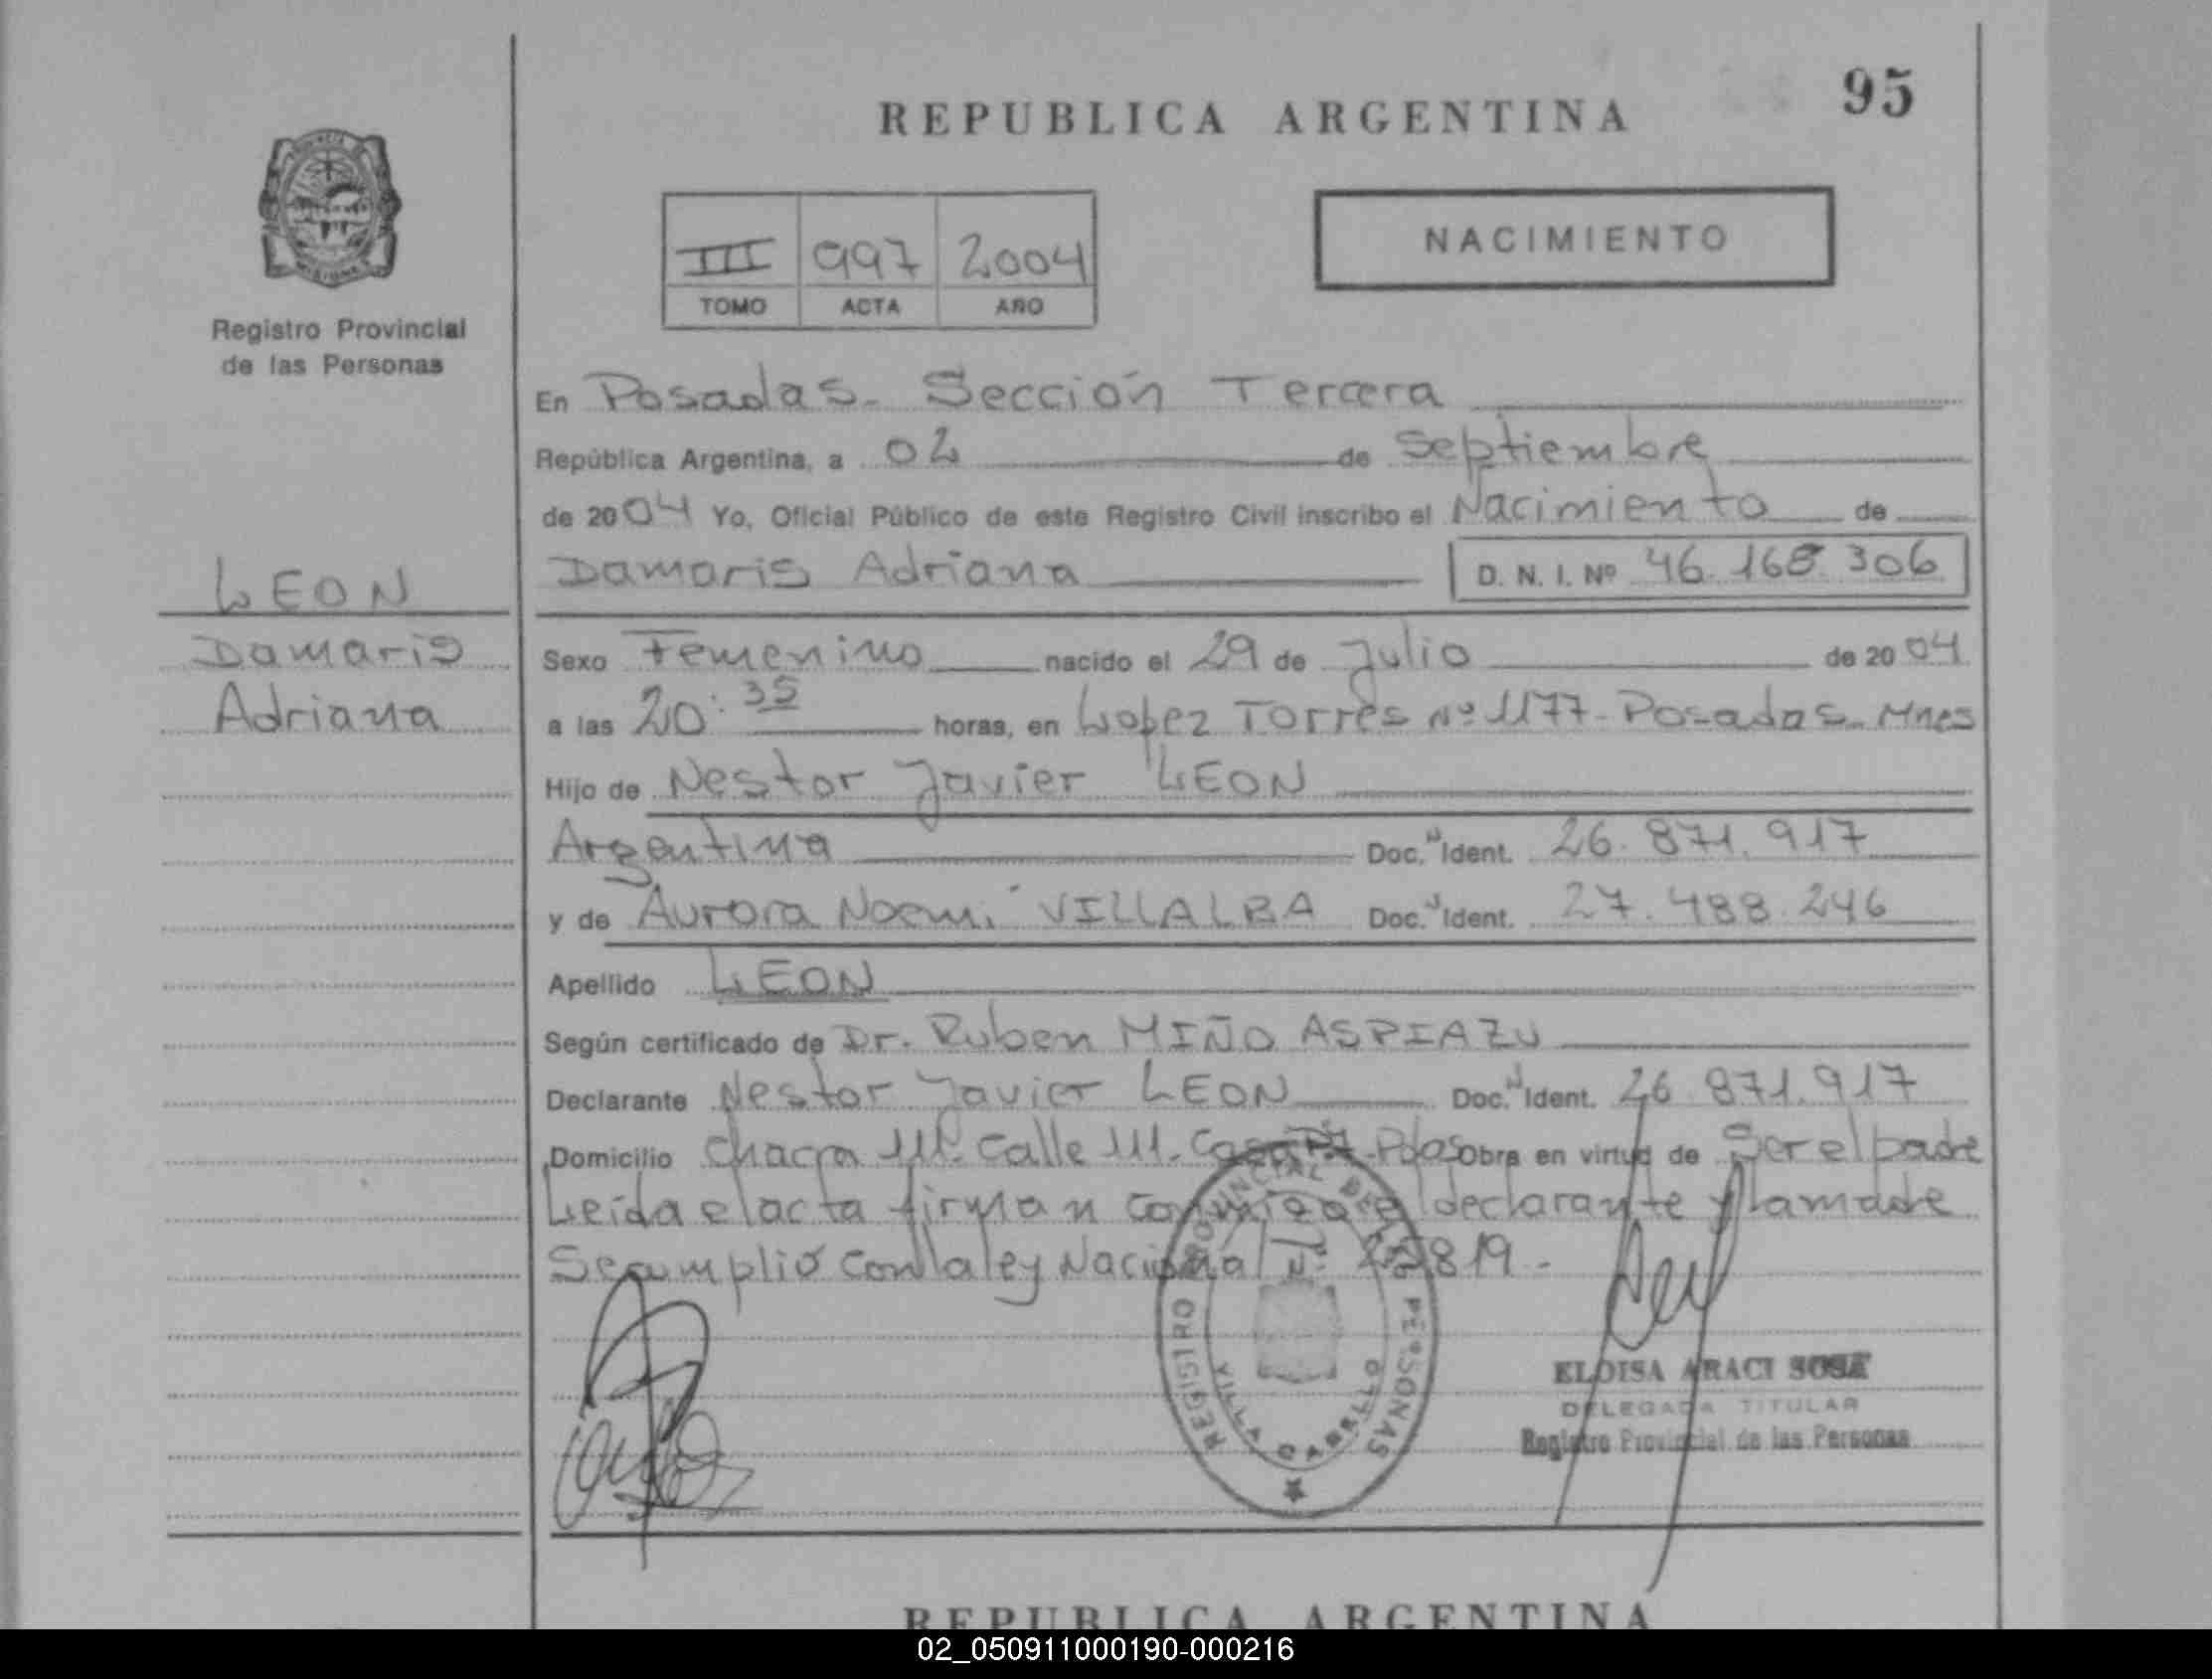 95
REPUBLICA ARGENTINA
NACIMIENTO
III 997 2004
TOMO ACTA AÑO
Registro Provincial
de las Personas
En Posadas - Sección Tercera
República Argentina, a 02 de Septiembre
de 2004 Yo, Oficial Público de este Registro Civil inscribo el Nacimiento de
Damaris Adriana D. N. I. Nº 46.168.306
LEON
Damaris
Adriana
Sexo Femenino nacido el 29 de Julio de 2004
a las 20:35 horas, en Lopez Torres Nº 1177 - Posadas - Mnes
Hijo de Nestor Javier LEON
Argentina Doc. Ident. 26.871.917
y de Aurora Noemí VILLALBA Doc. Ident. 27.488.246
Apellido LEON
Según certificado de Dr. Ruben MIÑO ASPIAZU
Declarante Nestor Javier LEON Doc. Ident. 26.871.917
Domicilio Chacra 111. Calle 111. Casa Pdas Obra en virtud de Ser el padre
Leída el acta firman conmigo el declarante y la madre
Se cumplió con la ley Nacional Nº 819.-
REGISTRO PROVINCIAL DE LAS PERSONAS
VILLA CABELLO
ELOISA ARACI SOSA
DELEGADA TITULAR
Registro Provincial de las Personas
REPUBLICA ARGENTINA
02_050911000190-000216